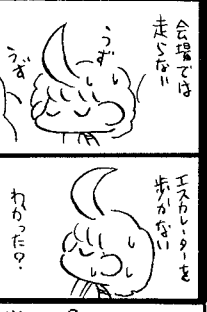 会場では
走らない
うず
うず
エスカレーターを
歩かない
わかった？